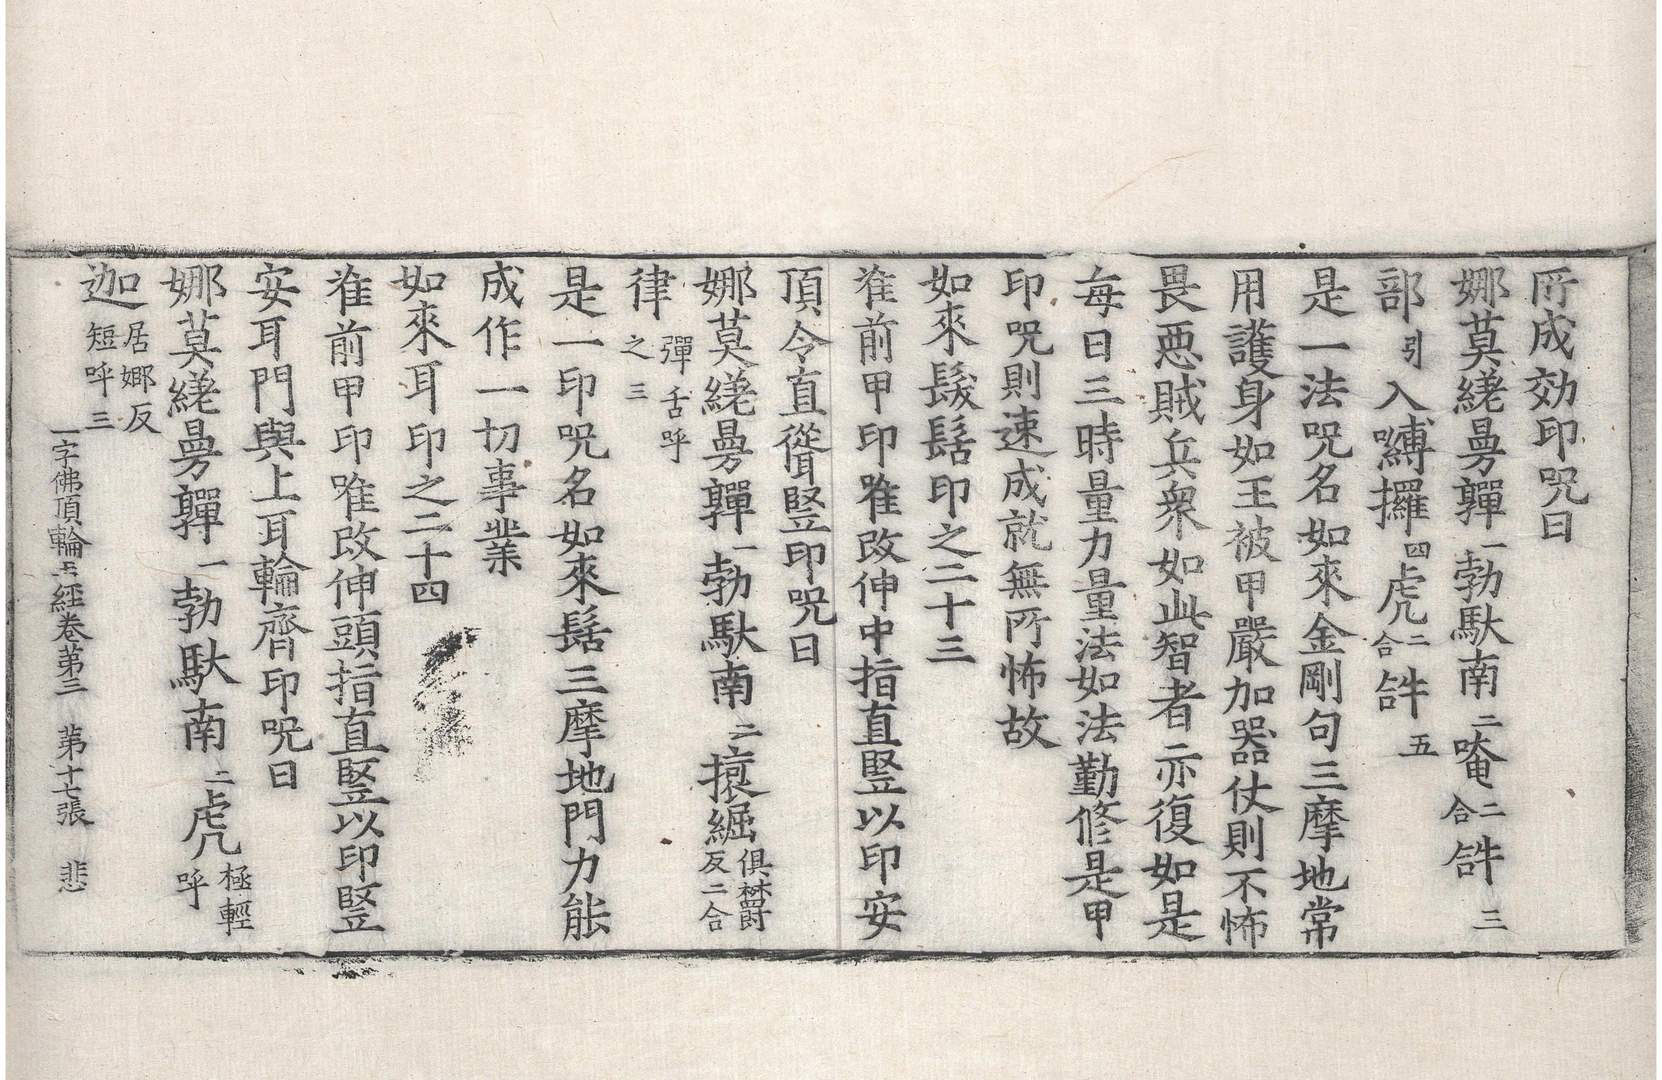 所成効印呪曰
娜莫縒曼亸一勃馱南二唵二合𤙖三
部引入嚩攞四虎二合𤙖五
是一法呪名如來金剛句三摩地常
用護身如王被甲嚴加器仗則不怖
畏惡賊兵衆如此智者亦復如是
每日三時量力量法如法勤修是甲
印呪則速成就無所怖故
如來髮髻印之二十三
准前甲印唯改伸中指直竪以印安
頂令直聳竪印呪曰
娜莫縒曼亸一勃馱南二搲䋖俱欝反二合
律彈舌呼之三
是一印呪名如來髻三摩地門力能
成作一切事業
如來耳印之二十四
准前甲印唯改伸頭指直竪以印竪
安耳門與上耳輪齊印呪曰
娜莫縒曼亸一勃馱南二虎極輕呼
迦居娜反短呼三
一字佛頂輪王經卷第三 第十七張 悲